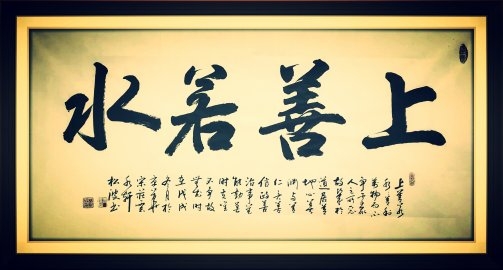 上善若水
上善若水
水善利
萬物而不
爭處衆
人之所惡
故幾於
道居善
地心善
淵與善
仁言善
信政善
治事善
能動善
時夫唯
不爭故
無尤時
戊戌
冬月於